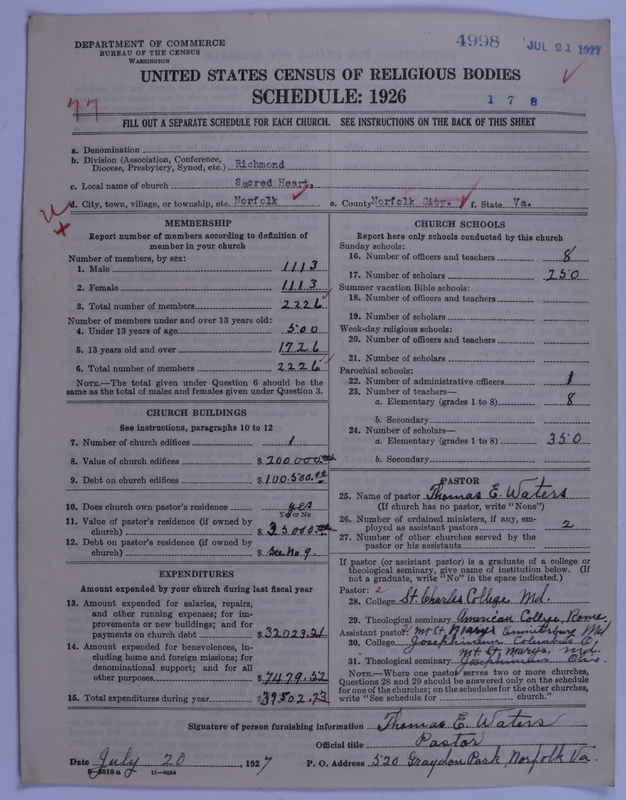 DEPARTMENT OF COMMERCE
BUREAU OF THE CENSUS
WASHINGTON
4998
JUL 21 1927
UNITED STATES CENSUS OF RELIGIOUS BODIES
SCHEDULE: 1926
77
1 7 8
FILL OUT A SEPARATE SCHEDULE FOR EACH CHURCH. SEE INSTRUCTIONS ON THE BACK OF THIS SHEET
a. Denomination
b. Division (Association, Conference, Diocese, Presbytery, Synod, etc.) Richmond
c. Local name of church Sacred Heart,
d. City, town, village, or township, etc. Norfolk e. County Norfolk City. f. State Va.
MEMBERSHIP
Report number of members according to definition of
member in your church
Number of members, by sex:
1. Male 1113
2. Female 1113
3. Total number of members 2226
Number of members under and over 13 years old:
4. Under 13 years of age 500
5. 13 years old and over 1726
6. Total number of members 2226
NOTE.—The total given under Question 6 should be
same as the total of males and females given under Question 3.
CHURCH BUILDINGS
See instructions, paragraphs 10 to 12
7. Number of church edifices 1
8. Value of church edifices $ 200000.00
9. Debt on church edifices $ 100.500.00
10. Does church own pastor's residence yes
Yes or No
11. Value of pastor's residence (if owned by
church) $ 35000.00
12. Debt on pastor's residence (if owned by
church) $ See No. 9.
EXPENDITURES
Amount expended by your church during last fiscal year
13. Amount expended for salaries, repairs,
and other running expenses; for im-
provements or new buildings; and for
payments on church debt $ 32023.21
14. Amount expended for benevolences, in-
cluding home and foreign missions; for
denominational support; and for all
other purposes $ 7479.52
15. Total expenditures during year $ 39502.73
CHURCH SCHOOLS
Report here only schools conducted by this church
Sunday schools:
16. Number of officers and teachers 8
17. Number of scholars 250
Summer vacation Bible schools:
18. Number of officers and teachers
19. Number of scholars
Week-day religious schools:
20. Number of officers and teachers
21. Number of scholars
Parochial schools:
22. Number of administrative officers 1
23. Number of teachers—
a. Elementary (grades 1 to 8) 8
b. Secondary
24. Number of scholars—
a. Elementary (grades 1 to 8) 350
b. Secondary
PASTOR
25. Name of pastor Thomas E. Waters
(If church has no pastor, write "None")
26. Number of ordained ministers, if any, em-
ployed as assistant pastors 2
27. Number of other churches served by the
pastor or his assistants
If pastor (or assistant pastor) is a graduate of a college or
theological seminary, give name of institution below. (If
not a graduate, write "No" in the space indicated.)
Pastor: 2
28. College St. Charles College Md.
29. Theological seminary American College, Rome
Assistant pastor: Mt St. Mary's Emmitsburg Md
30. College Josephinum Columbus O.
Mt. St. Marys. Md.
31. Theological seminary Josephinum Ohio.
NOTE.—Where one pastor serves two or more churches,
Questions 28 and 29 should be answered only on the schedule
for one of the churches; on the schedules for the other churches,
write "See schedule for church."
Signature of person furnishing information Thomas E. Waters
Official title Pastor
Date July 20, 1927 P. O. Address 520 Graydon Park, Norfolk Va.
8518a 11—9054